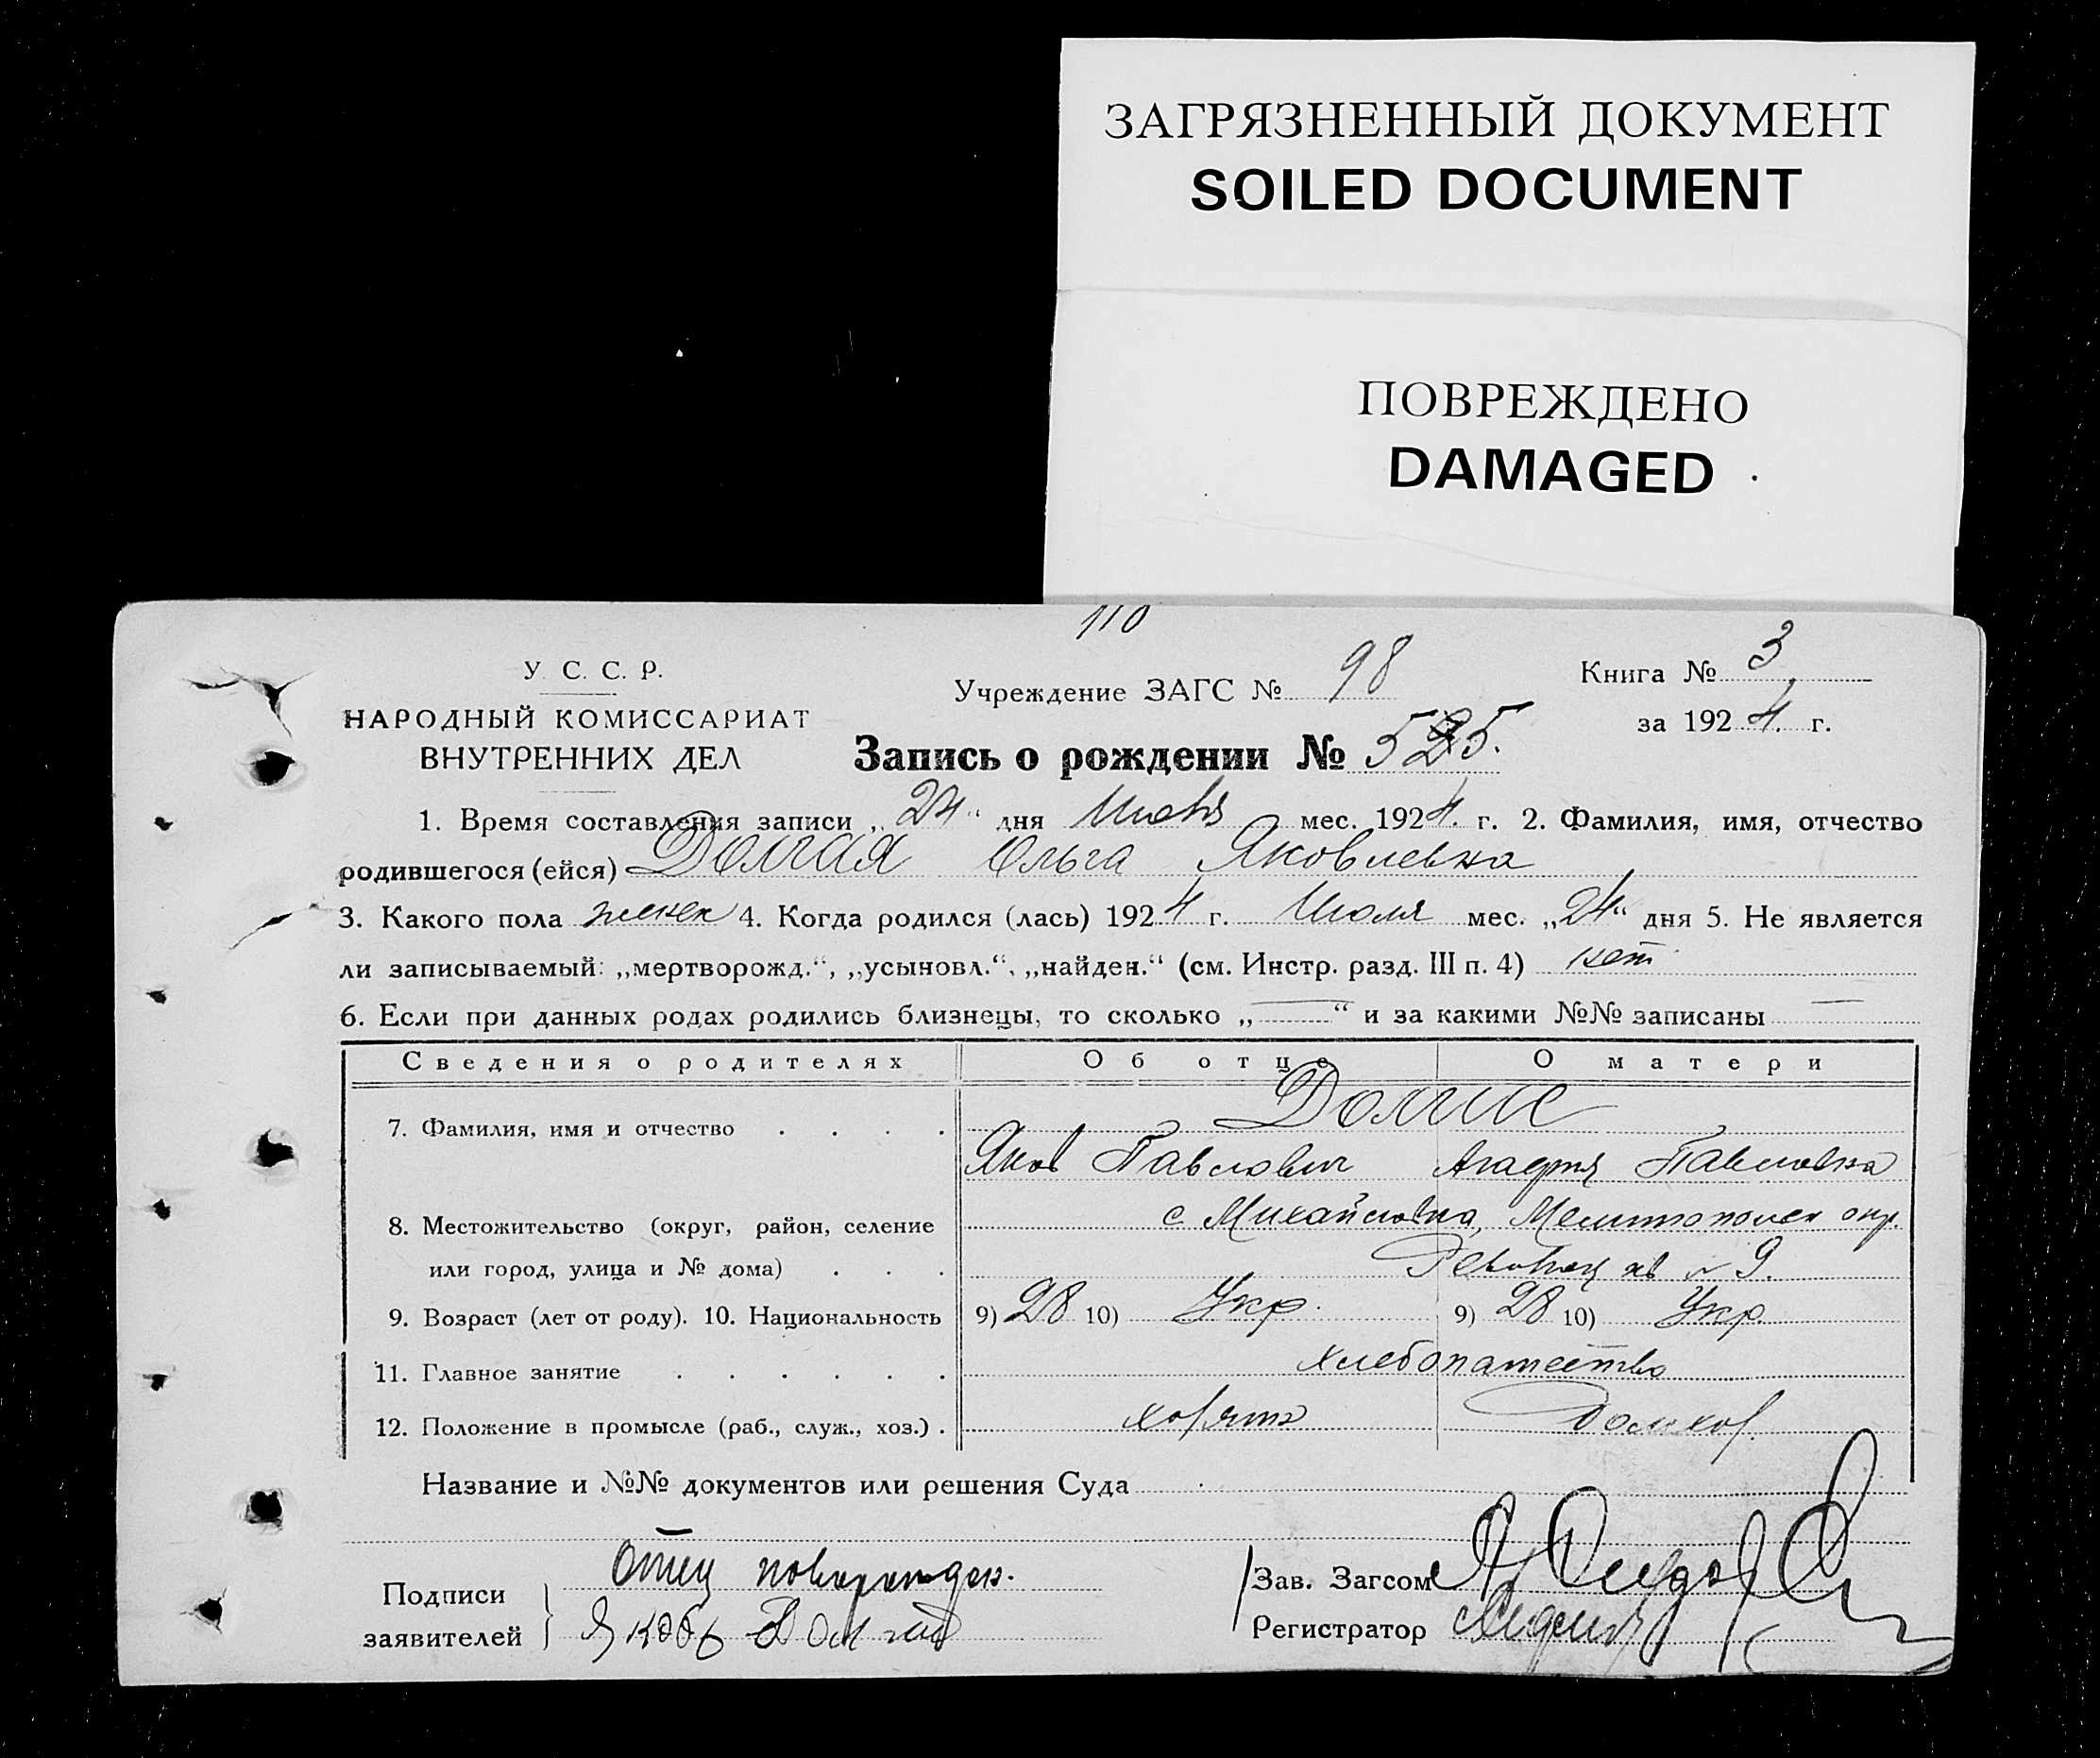 ЗАГРЯЗНЕННЫЙ ДОКУМЕНТ
SOILED DOCUMENT
ПОВРЕЖДЕНО
DAMAGED
110
У. С. С. Р.
НАРОДНЫЙ КОМИССАРИАТ
ВНУТРЕННИХ ДЕЛ
Учреждение ЗАГС № 98
Книга № 3
за 1924 г.
Запись о рождении № 525.
1. Время составления записи „24“ дня мес. 1924 г. 2. Фамилия, имя, отчество
родившегося (ейся) Долгая Ольга Яковлевна
3. Какого пола женск 4. Когда родился (лась) 1924 г. Июля мес. „24“ дня 5. Не является
ли записываемый: „мертворожд.“, „усыновл.“, „найден.“ (см. Инстр. разд. III п. 4) нет
6. Если при данных родах родились близнецы, то сколько „—“ и за какими №№ записаны —
Сведения о родителях Об отце О матери
7. Фамилия, имя и отчество . . . . Долгие
Яков Павлович Павловна
8. Местожительство (округ, район, селение с Михайловка, Мелитопольск окр.
или город, улица и № дома) . . . 9.
9. Возраст (лет от роду). 10. Национальность 9) 28 10) Укр. 9) 28 10) Укр.
11. Главное занятие . . . . . . хлебопашество
12. Положение в промысле (раб., служ., хоз.) .
Название и №№ документов или решения Суда
Подписи Отец новорожден.
заявителей Якобъ Долгий
Зав. Загсом
Регистратор